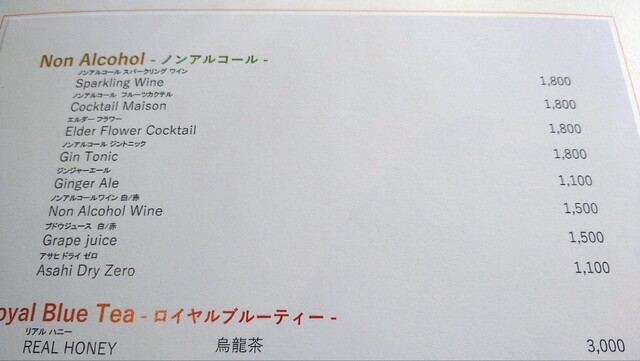 Non Alcohol - ノンアルコール -
ノンアルコール スパークリング ワイン
Sparkling Wine 1,800
ノンアルコール フルーツカクテル
Cocktail Maison 1,800
エルダー フラワー
Elder Flower Cocktail 1,800
ノンアルコール ジントニック
Gin Tonic 1,800
ジンジャーエール
Ginger Ale 1,100
ノンアルコールワイン 白/赤
Non Alcohol Wine 1,500
ブドウジュース 白/赤
Grape juice 1,500
アサヒ ドライ ゼロ
Asahi Dry Zero 1,100
oyal Blue Tea - ロイヤルブルーティー -
リアル ハニー
REAL HONEY 烏龍茶 3,000